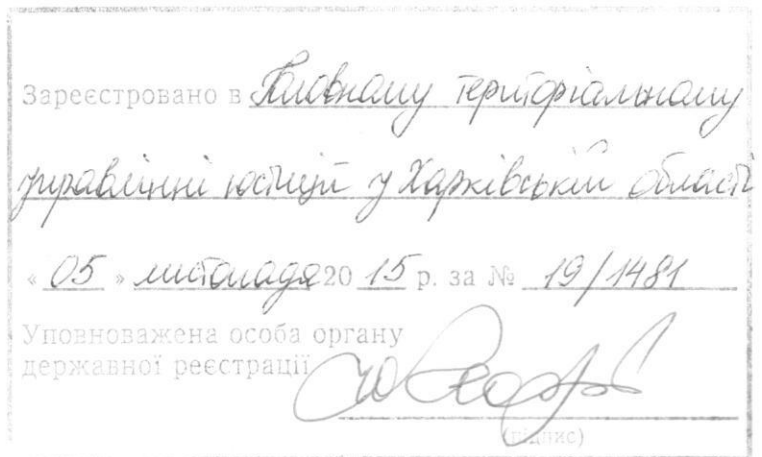 Зареєстровано в Головному територіальному
управлінні юстиції у Харківській області
« 05 » листопада 20 15 р. за № 19/1481
Уповноважена особа органу
державної реєстрації
(підпис)